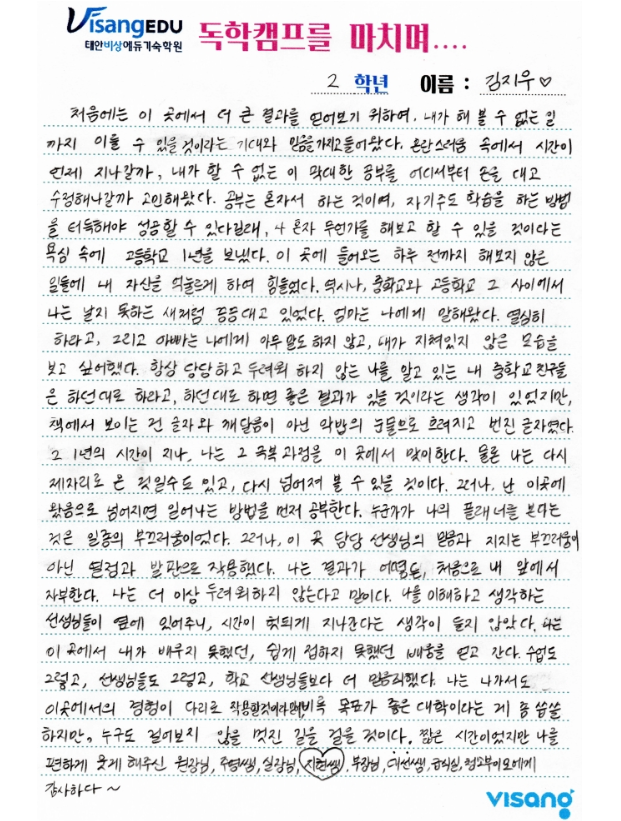 VisangEDU
태안비상에듀기숙학원
독학캠프를 마치며....
2 학년 이름 : 김지우♡
처음에는 이 곳에서 더 큰 결과를 얻어보기 위하여, 내가 해 볼 수 없는 일
까지 이룰 수 있을 것이라는 기대와 믿음을 가지고 들어왔다. 혼란스러움 속에서 시간이
언제 지나갈까, 내가 할 수 없는 이 막대한 공부를 어디서부터 손을 대고
수정해나갈까 고민해왔다. 공부는 혼자서 하는 것이며, 자기주도 학습을 하는 방법
을 터득해야 성공할 수 있다길래, 나 혼자 무언가를 해보고 할 수 있을 것이다는
욕심 속에 고등학교 1년을 보냈다. 이 곳에 들어오는 하루 전까지 해보지 않은
일들에 내 자신을 억누르게 하여 힘들었다. 역시나, 중학교와 고등학교 그 사이에서
나는 날지 못하는 새처럼 끙끙대고 있었다. 엄마는 나에게 말해왔다. 열심히
하라고, 그리고 아빠는 나에게 아무 말도 하지 않고, 내가 지쳐있지 않은 모습을
보고 싶어했다. 항상 당당하고 두려워 하지 않는 나를 알고 있는 내 중학교 친구들
은 하던대로 하라고, 하던대로 하면 좋은 결과가 있을 것이라는 생각이 있었지만,
책에서 보이는 건 글자와 깨달음이 아닌 악밖의 눈물으로 흐려지고 번진 글자였다.
그 1년의 시간이 지나, 나는 그 극복과정을 이 곳에서 맞이한다. 물론 나는 다시
제자리로 온 것일수도 있고, 다시 넘어져 볼 수 있을 것이다. 그러나, 난 이곳에
왔음으로 넘어지면 일어나는 방법을 먼저 공부한다. 누군가가 나의 플래너를 본다는
것은 일종의 부끄러움이었다. 그러나, 이 곳 담당 선생님의 믿음과 지지는 부끄러움이
아닌 열정과 발판으로 작용했다. 나는 결과가 어떻든, 처음으로 내 앞에서
자부한다. 나는 더 이상 두려워하지 않는다고 말이다. 나를 이해하고 생각하는
선생님들이 옆에 있어주니, 시간이 헛되게 지나간다는 생각이 들지 않았다. 나는
이 곳에서 내가 배우지 못했던, 쉽게 접하지 못했던 배움을 얻고 간다. 수업도
그렇고, 선생님들도 그렇고, 학교 선생님들보다 더 믿음직했다. 나는 나가서도
이곳에서의 경험이 다리로 작용할것이라면, 비록 목표가 좋은 대학이라는 게 좀 씁쓸
하지만, 누구도 걸어보지 않을 멋진 길을 걸을 것이다. 짧은 시간이었지만 나를
편하게 웃게 해주신 원장님, 주영쌤, 실장님, 지현쌤, 부장님, 대선쌤, 급식실, 청소부이모에게
감사하다 ~
visang